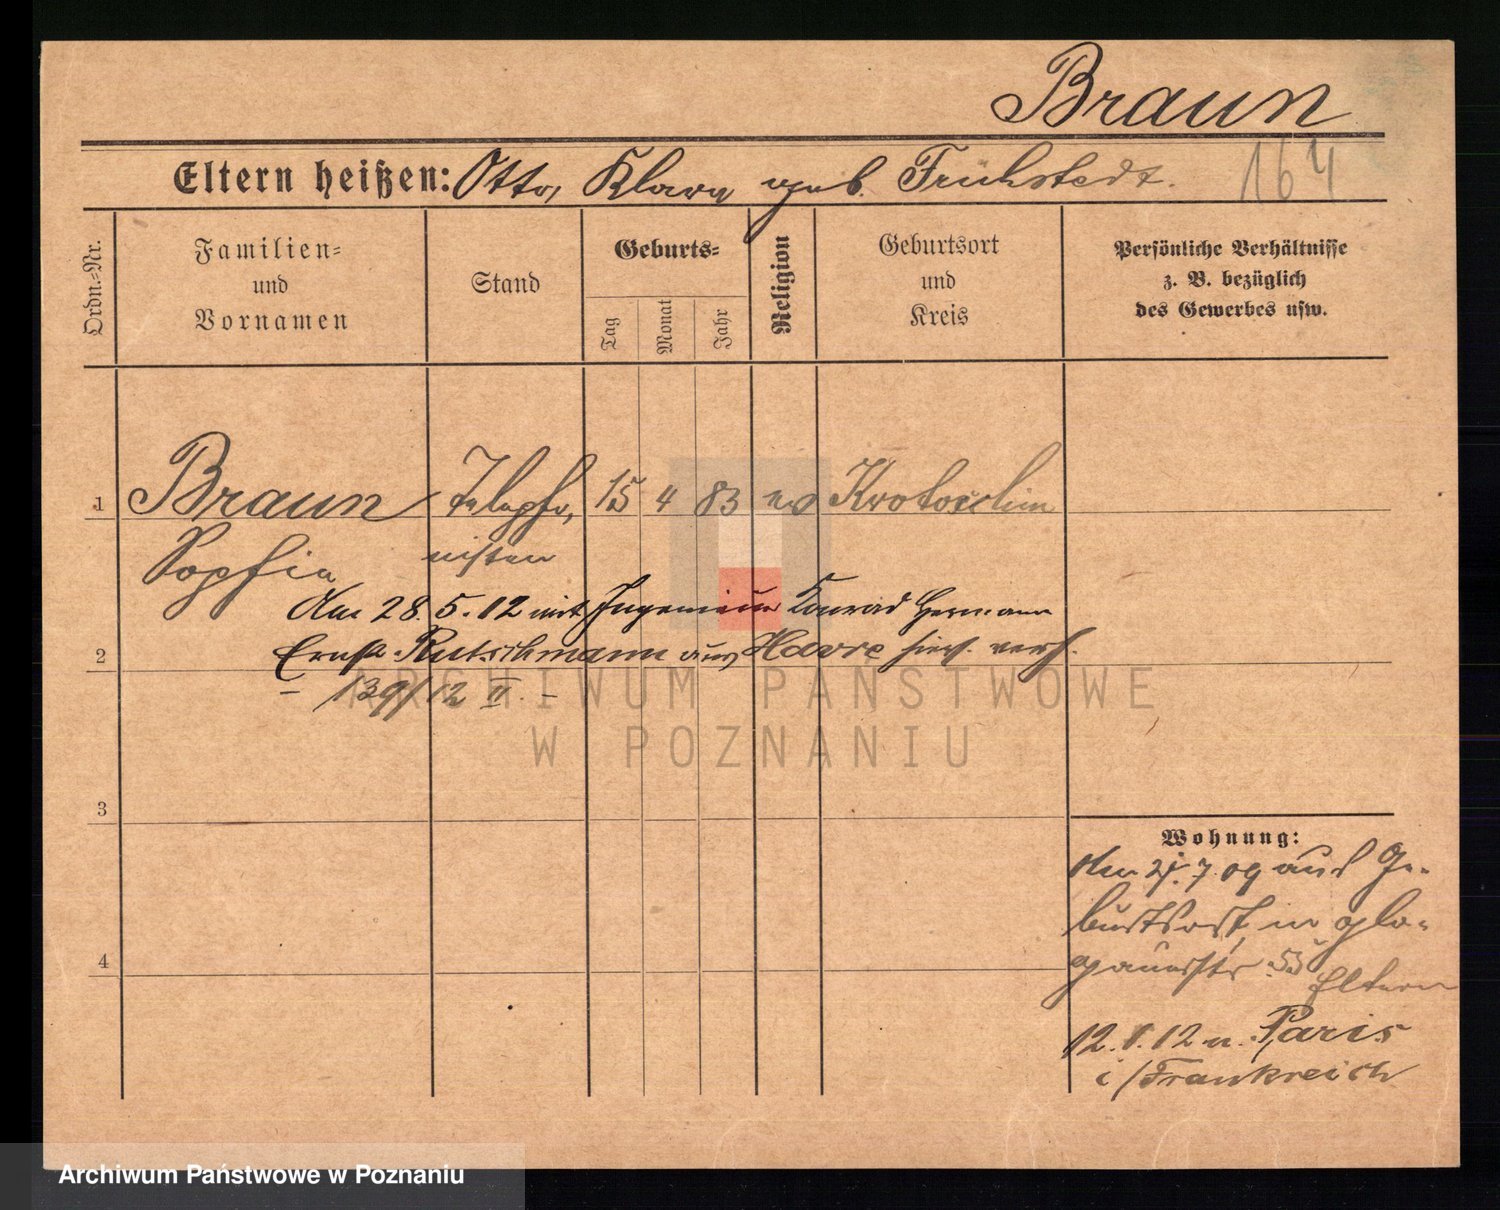 Braun
Eltern heißen: Otto, Klara geb. Frühstedt.
164
Ordn.=Nr.
Familien=
und
Vornamen
Stand
Geburts=
Tag
Monat
Jahr
Religion
Geburtsort
und
Kreis
Persönliche Verhältnisse
z. B. bezüglich
des Gewerbes usw.
1 Braun Telepho, 15 4 83 ev Krotoschin
Sophie nisten
Am 28. 5. 12 mit Ingenieur Konrad Hermann
2 Ernst Rutschmann aus Havre hier verh.
- 139/12 II. -
3
Wohnung:
7. 09 aus Ge-
burtsort in Glo-
4 gauerstr 53 Eltern
12. 12 n. Paris
i/Frankreich
ARCHIWUM PAŃSTWOWE
W POZNANIU
Archiwum Państwowe w Poznaniu